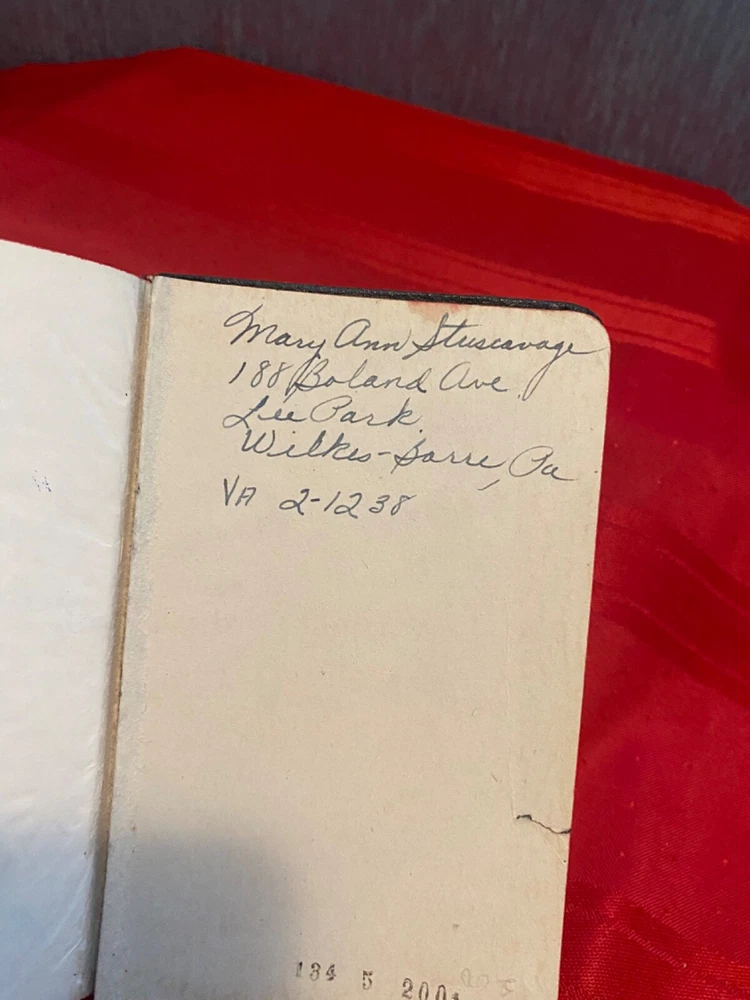 Mary Ann Stuscavage
188 Boland Ave.
Lee Park.
Wilkes-Barre, Pa
VA 2-1238
134 5 200